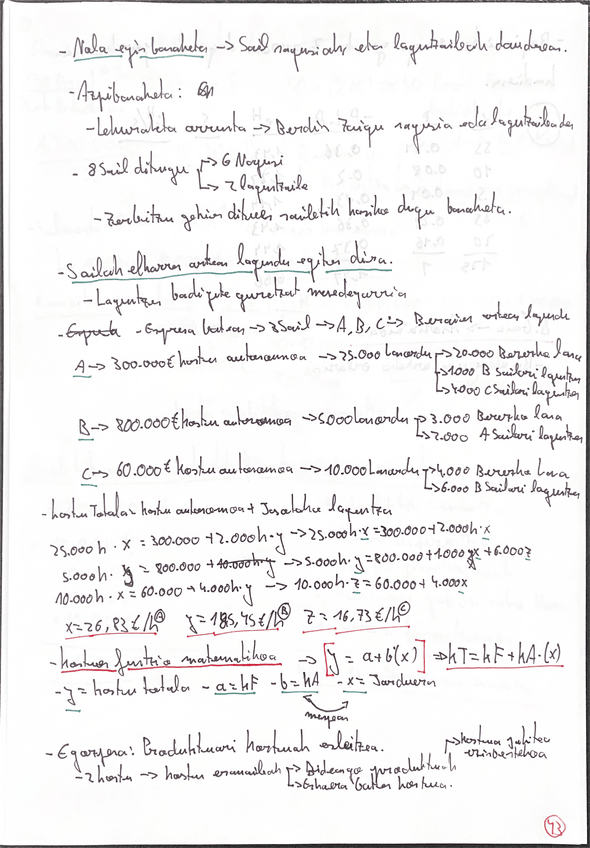 - Nola egin banaketa → Sail nagusiak eta laguntzaileak daudenean.
- Azpibanaketa:
- Lehurraketa arrunta → Berdin zaigu nagusia edo laguntzailea den
- 8 Sail ditugu → 6 Nagusi
→ 2 laguntzaile
- Zerbitzu gehien dituen sailetik hasiko dugu banaketa.
- Sailak elkarren artean lagundu egiten dira.
- Laguntzen badigute guretzat mesedegarria
- Enpresa batean → 3 Sail → A, B, C → Beraien artean lagundu
A → 300.000€ kostu autonomoa → 25.000 lanordu → 20.000 Berezko lana
→ 1000 B Sailari laguntzen
→ 4000 C Sailari laguntzen
B → 800.000€ kostu autonomoa → 5000 lanordu → 3.000 Berezko lana
→ 2.000 A Sailari laguntzen
C → 60.000€ kostu autonomoa → 10.000 lanordu → 4.000 Berezko lana
→ 6.000 B Sailari laguntzen
- kostu Totala = kostu autonomoa + Jasotako laguntza
25.000h · x = 300.000 + 2.000h · y → 25.000h · x = 300.000 + 2.000h · x
5.000h · y = 800.000 + 10.000h · y → 5.000h · y = 800.000 + 1.000 x + 6.000z
10.000h · x = 60.000 + 4.000h · y → 10.000h · z = 60.000 + 4.000x
x = 26,83€/h Ⓐ y = 185,45€/h Ⓑ z = 16,73€/h Ⓒ
- kostuen funtzio matematikoa → [y = a + b(x)] → kT = kF + kA · (x)
- y = kostu totala - a = kF - b = kA - x = Jarduera
menpean
- Egozpena: Produktuari kostuak esleitzea.
- 2 kostu → kostu eramaileak → Bidezago produktuak → kostua jakitea ezinbestekoa
→ Eskaera baten kostua.
43